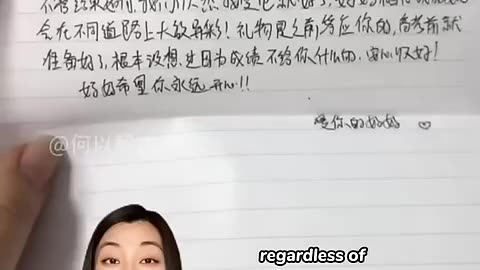 不管结果如何,我们
会在不同道路上大放异彩!礼物是之前答应你的,高考前就
准备好了,根本没想过因为成绩不给你什么的,安心收好!
妈妈希望你永远开心!!
爱你的妈妈 ♡
@何以
regardless of